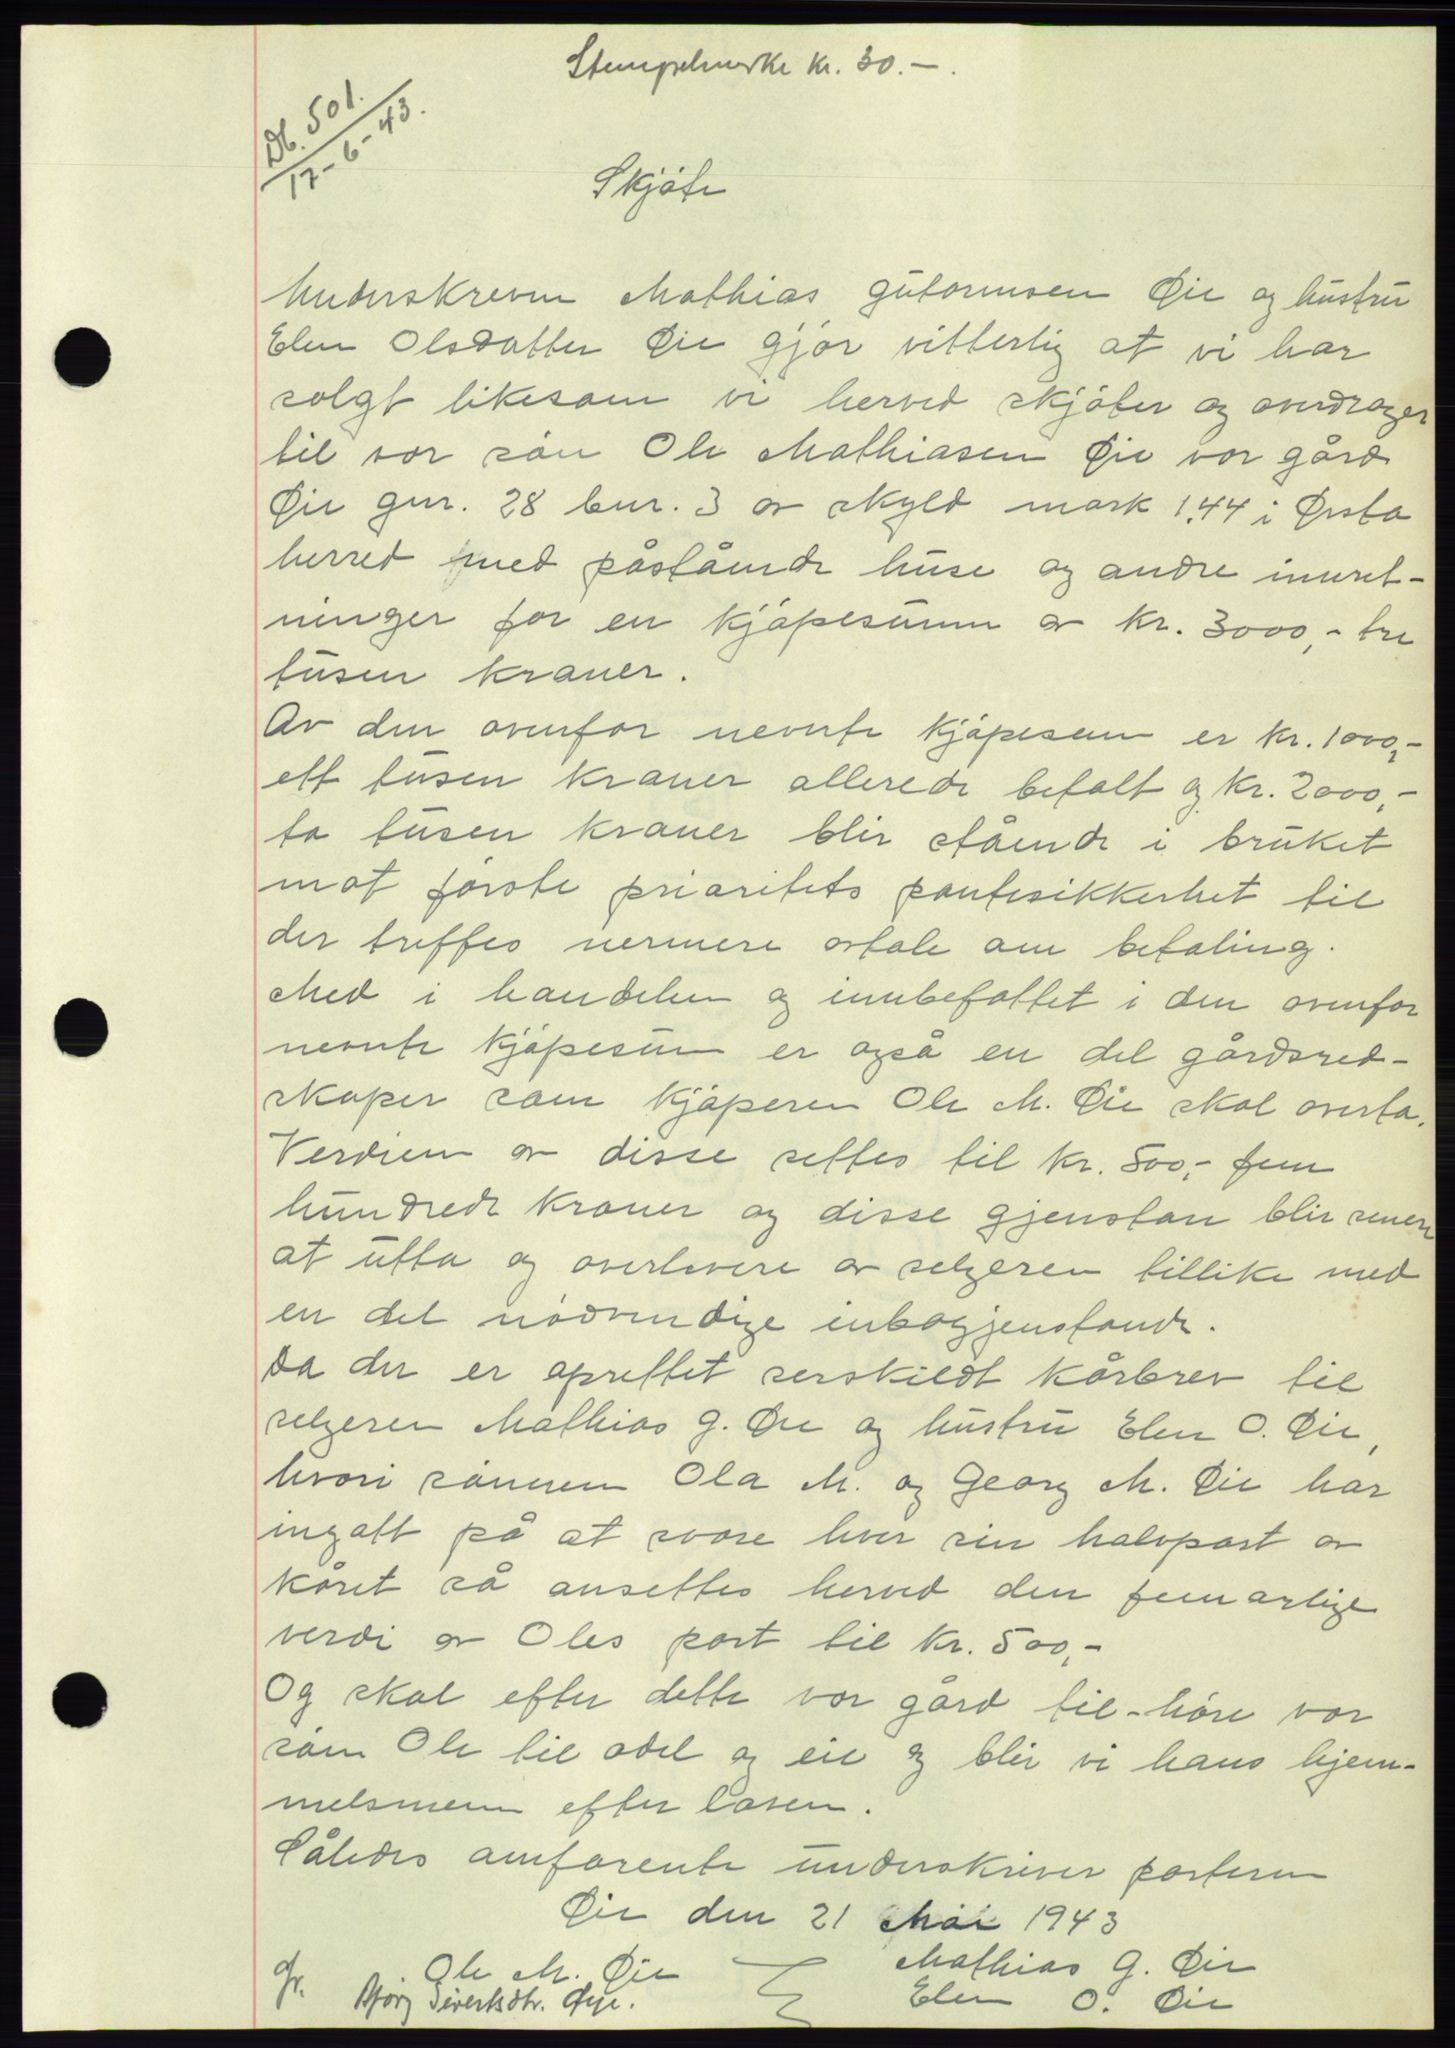 Stempelmerke kr. 30.-.
Db. 501.
17-6-43.
Skjøte
Underskreven Mathias Gutormsen Øie og hustru
Elen Olsdatter Øie gjør vitterlig at vi har
solgt likesom vi herved skjøter og overdrager
til vor søn Ole Mathiasen Øie vor gård
Øie gnr. 28 bnr. 3 av skyld mark 1,44 i Ørsta
herred med påstående huse og andre innret-
ninger for en kjøpesumm av kr. 3000,- tre
tusen kroner.
Av den ovenfor nevnte kjøpesum er kr. 1000,-
ett tusen kroner allerede betalt og kr. 2000,-
to tusen kroner blir stående i bruket
mot første prioritets pantesikkerhet til
der treffes nermere avtale om betaling.
Med i handelen og innbefattet i den ovenfor
nevnte kjøpesum er også en del gårdsred-
skaper som kjøperen Ole M. Øie skal overta.
Verdien av disse settes til kr. 500,- fem
hundrede kroner og disse gjenstan blir senere
at utta og overlevere av selgeren tillike med
en del nødvendige inbogjenstande.
Da der er oprettet serskildt kårbrev til
selgeren Mathias G. Øie og hustru Elen O. Øie,
hvori sønnen Ola M. og Georg M. Øie har
ingått på at svare hver sin halvpart av
kåret så ansettes herved den femårlige
verdi av Oles part til kr. 500,-
Og skal efter dette vor gård til-høre vor
søn Ole til odel og eie og blir vi hans hjem-
melsmenn efter loven.
Således omforente underskriver partene
Øie den 21 Mai 1943
Mathias G. Øie
Elen O. Øie
Ole M. Øie
gr. Bjørg Sivertsdtr. Øye.